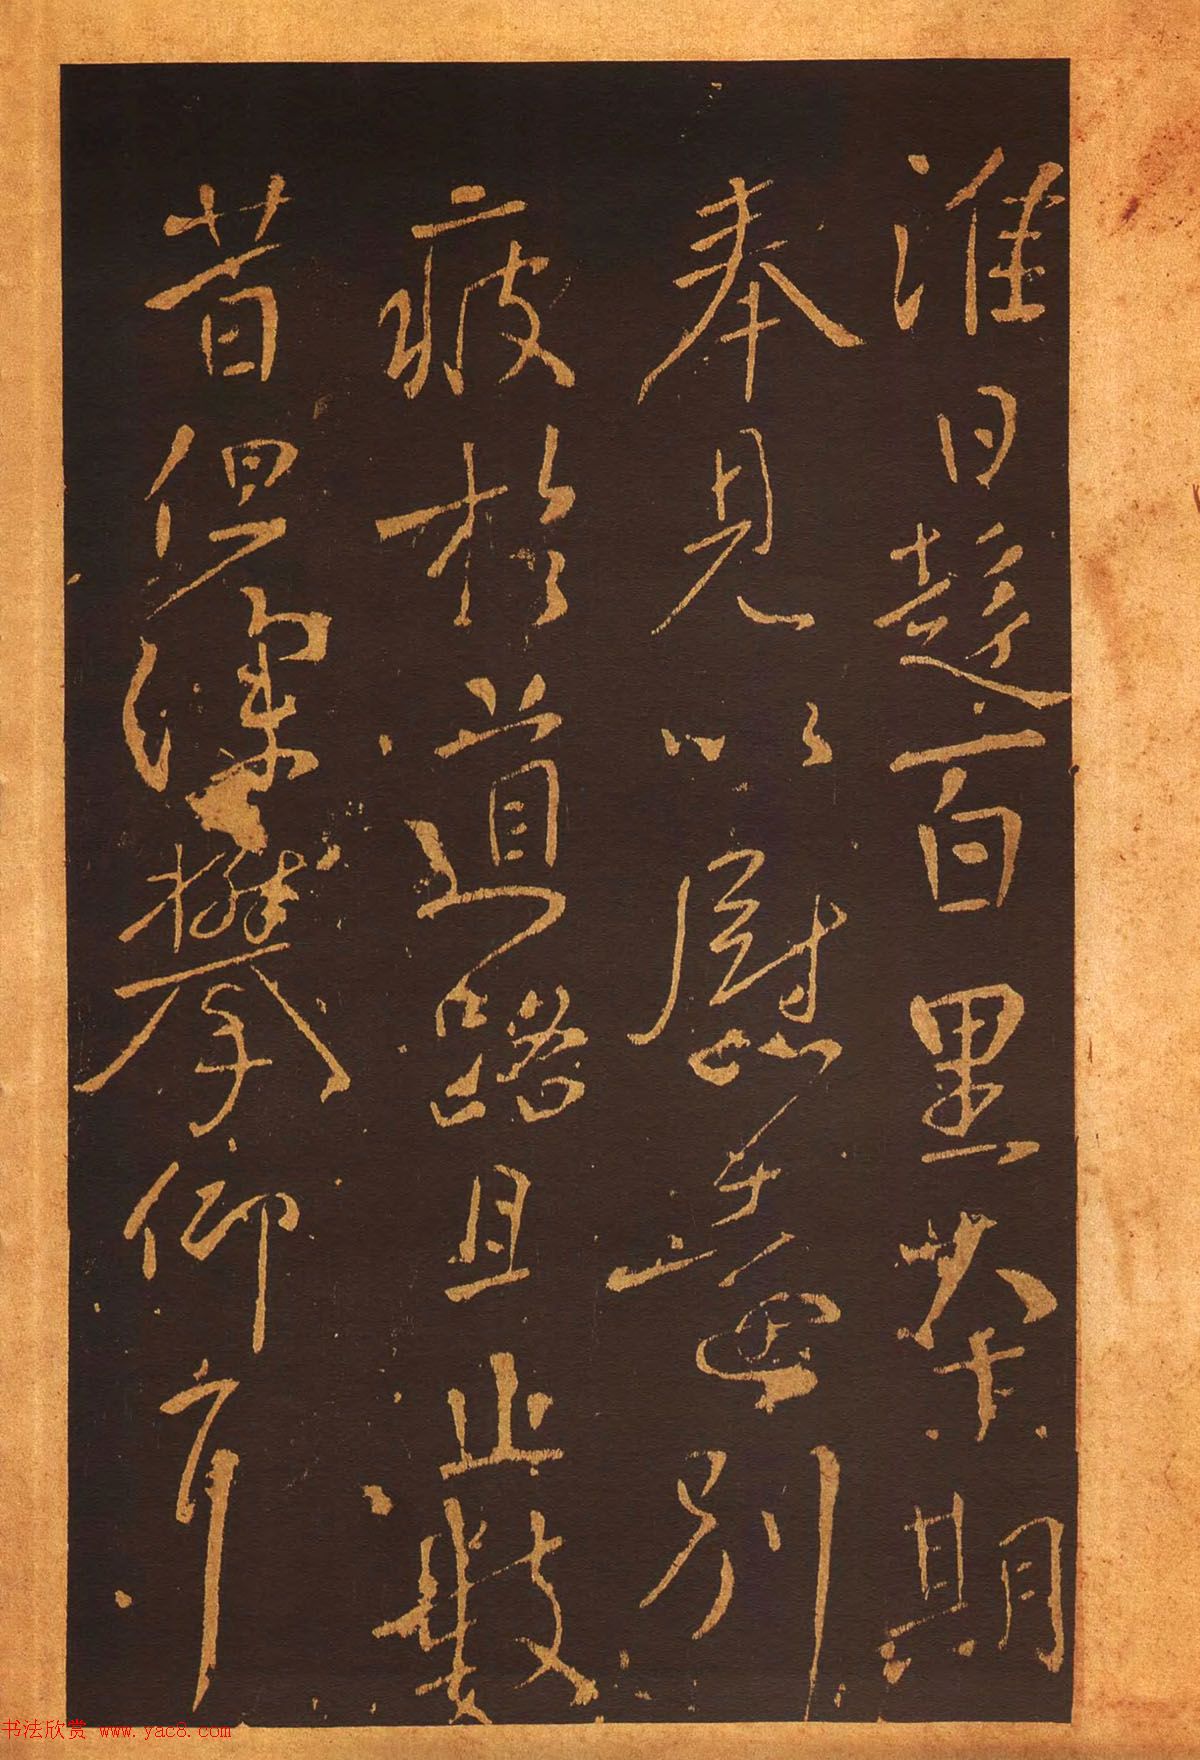 淮日趍百里乘期
奉見以慰喜既別
疲於道路且止數
昔但深攀仰育
书法欣赏 www.yac8.com